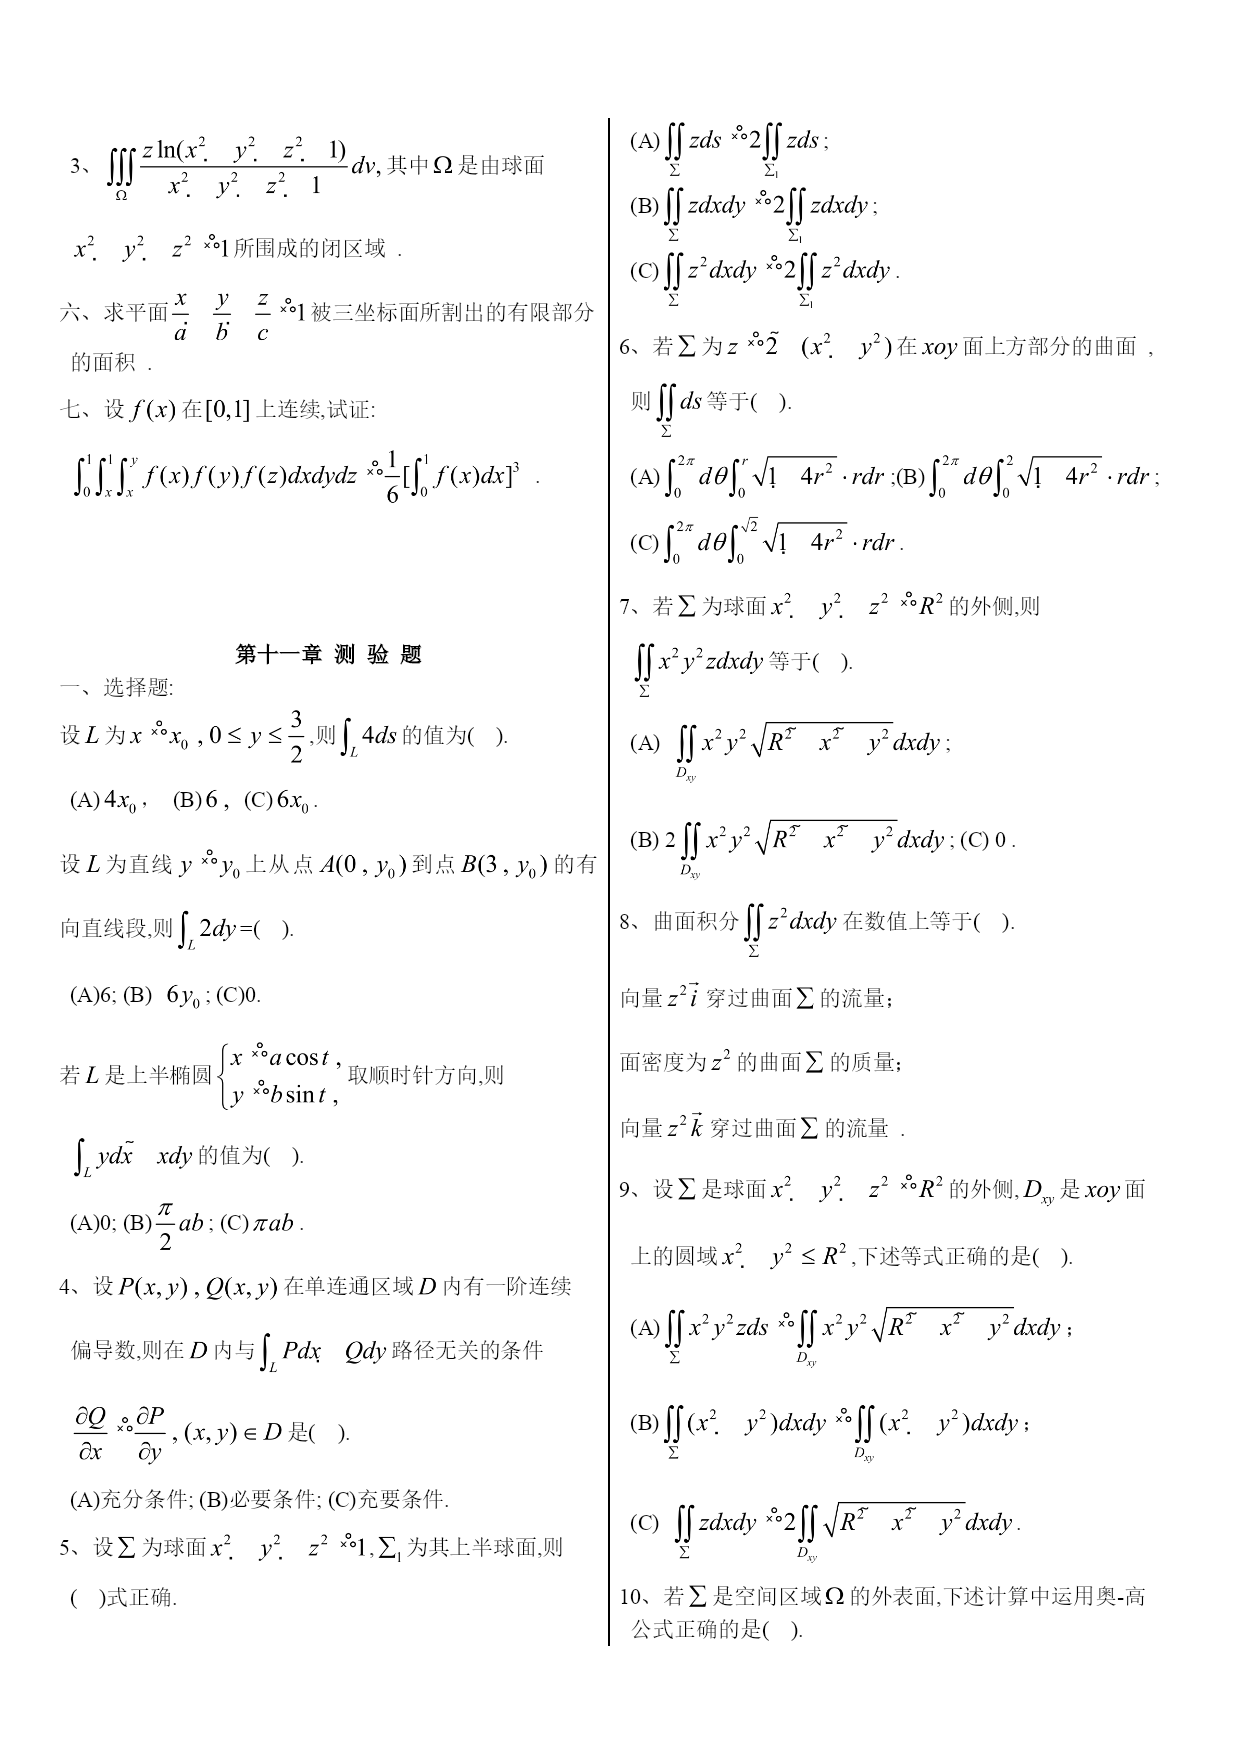 3、∭_Ω z ln(x² + y² + z² + 1) / (x² + y² + z² + 1) dv, 其中 Ω 是由球面
x² + y² + z² = 1 所围成的闭区域 .
六、求平面 x/a + y/b + z/c = 1 被三坐标面所割出的有限部分
的面积 .
七、设 f(x) 在 [0,1] 上连续,试证:
∫₀¹∫ₓ¹∫ₓʸ f(x)f(y)f(z)dxdydz = 1/6 [∫₀¹ f(x)dx]³ .
第十一章 测 验 题
一、选择题:
设 L 为 x = x₀ , 0 ≤ y ≤ 3/2 ,则 ∫_L 4ds 的值为( ).
(A) 4x₀ , (B) 6 , (C) 6x₀ .
设 L 为直线 y = y₀ 上从点 A(0 , y₀) 到点 B(3 , y₀) 的有
向直线段,则 ∫_L 2dy =( ).
(A)6; (B) 6y₀ ; (C)0.
若 L 是上半椭圆 { x = a cos t , y = b sin t , 取顺时针方向,则
∫_L ydx − xdy 的值为( ).
(A)0; (B) π/2 ab ; (C) πab .
4、设 P(x, y) , Q(x, y) 在单连通区域 D 内有一阶连续
偏导数,则在 D 内与 ∫_L Pdx + Qdy 路径无关的条件
∂Q/∂x = ∂P/∂y , (x, y) ∈ D 是( ).
(A)充分条件; (B)必要条件; (C)充要条件.
5、设 ∑ 为球面 x² + y² + z² = 1 , ∑₁ 为其上半球面,则
( )式正确.
(A) ∬_∑ zds = 2∬_∑₁ zds ;
(B) ∬_∑ zdxdy = 2∬_∑₁ zdxdy ;
(C) ∬_∑ z²dxdy = 2∬_∑₁ z²dxdy .
6、若 ∑ 为 z = 2 − (x² + y²) 在 xoy 面上方部分的曲面 ,
则 ∬_∑ ds 等于( ).
(A) ∫₀^{2π} dθ ∫₀^r √(1 + 4r²) · rdr ;(B) ∫₀^{2π} dθ ∫₀² √(1 + 4r²) · rdr ;
(C) ∫₀^{2π} dθ ∫₀^{√2} √(1 + 4r²) · rdr .
7、若 ∑ 为球面 x² + y² + z² = R² 的外侧,则
∬_∑ x²y²zdxdy 等于( ).
(A) ∬_{D_xy} x²y² √(R² − x² − y²) dxdy ;
(B) 2∬_{D_xy} x²y² √(R² − x² − y²) dxdy ; (C) 0 .
8、曲面积分 ∬_∑ z²dxdy 在数值上等于( ).
向量 z² i⃗ 穿过曲面 ∑ 的流量;
面密度为 z² 的曲面 ∑ 的质量;
向量 z² k⃗ 穿过曲面 ∑ 的流量 .
9、设 ∑ 是球面 x² + y² + z² = R² 的外侧, D_xy 是 xoy 面
上的圆域 x² + y² ≤ R² ,下述等式正确的是( ).
(A) ∬_∑ x²y²zds = ∬_{D_xy} x²y² √(R² − x² − y²) dxdy ;
(B) ∬_∑ (x² + y²)dxdy = ∬_{D_xy} (x² + y²)dxdy ;
(C) ∬_∑ zdxdy = 2∬_{D_xy} √(R² − x² − y²) dxdy .
10、若 ∑ 是空间区域 Ω 的外表面,下述计算中运用奥-高
公式正确的是( ).